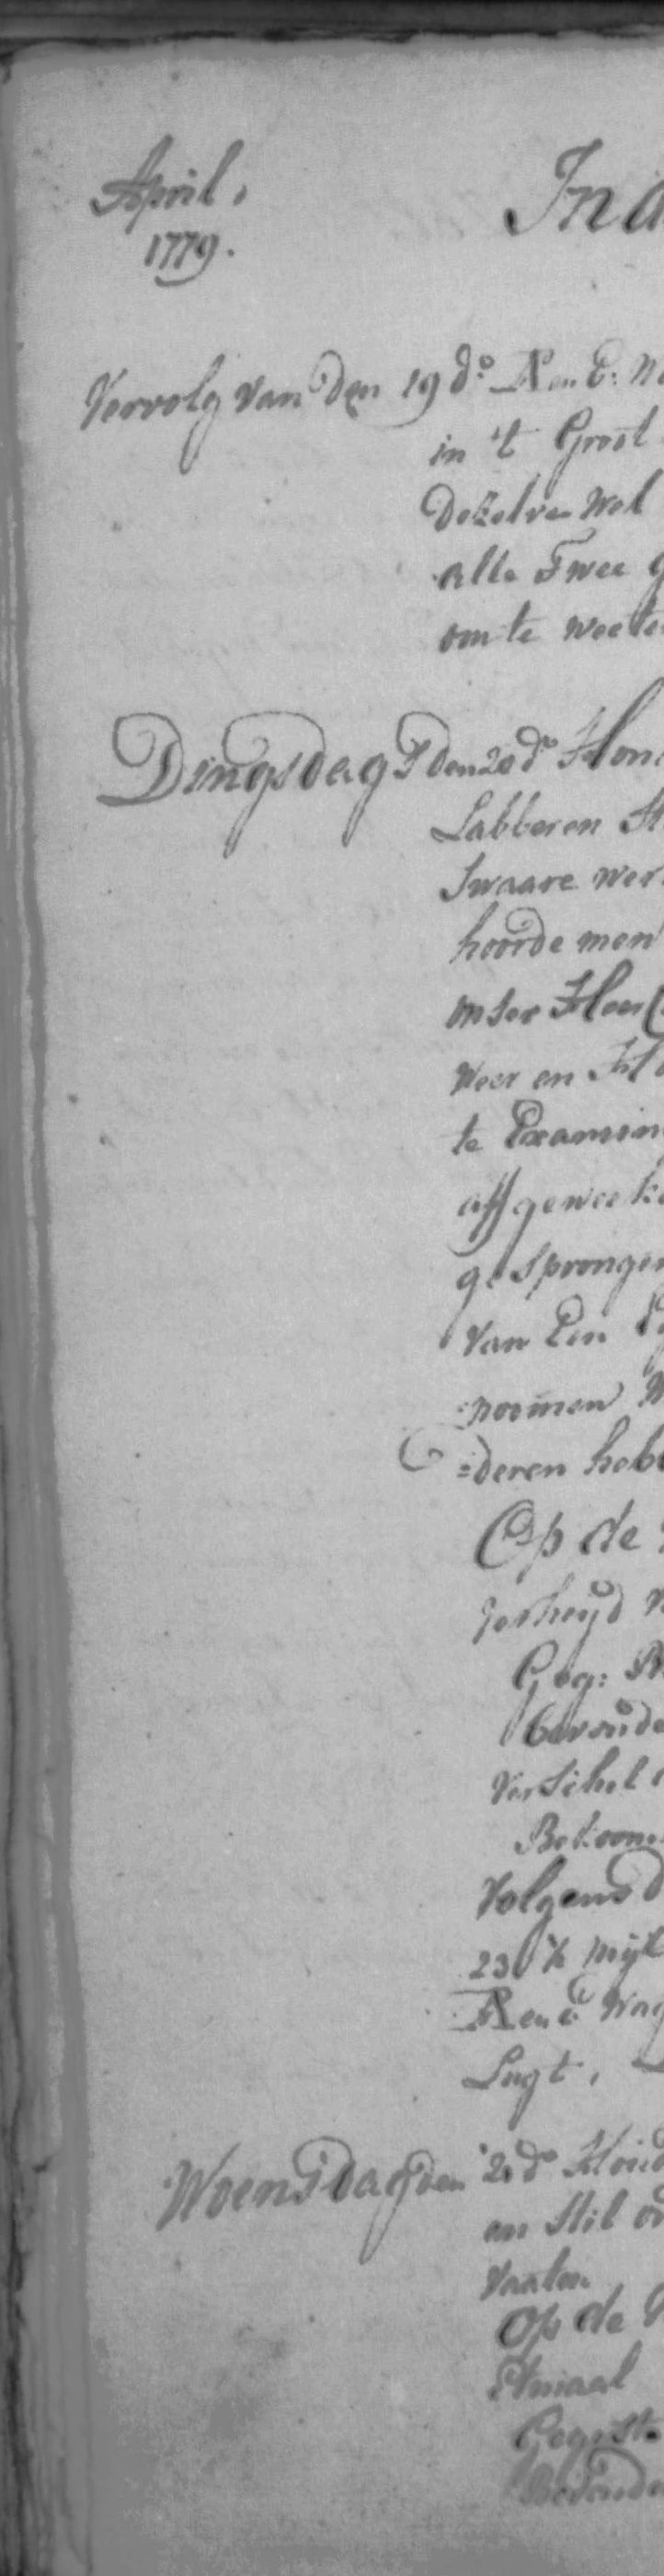 April,
Ind
1779.
Vervolg van den 19 do R en E: W
in 't Groot
dezelve wel
alle Twee g
om te weete
Dingsdag den 20 do Hon
Labberen St
Swaare wer
hoorde men
onser Heer
Weer en
te Examin
affgeweeke
gesprongen
van Een
noomen
=deren heb
Op de
Geg:
bevonde
Verschel
Bekoome
Volgens d
23 1/2 Myl
R en E: Wag
Lugt,
Woensdag den 21 do
en Stil
Op de
Etmaal
Gegist
Bevonde